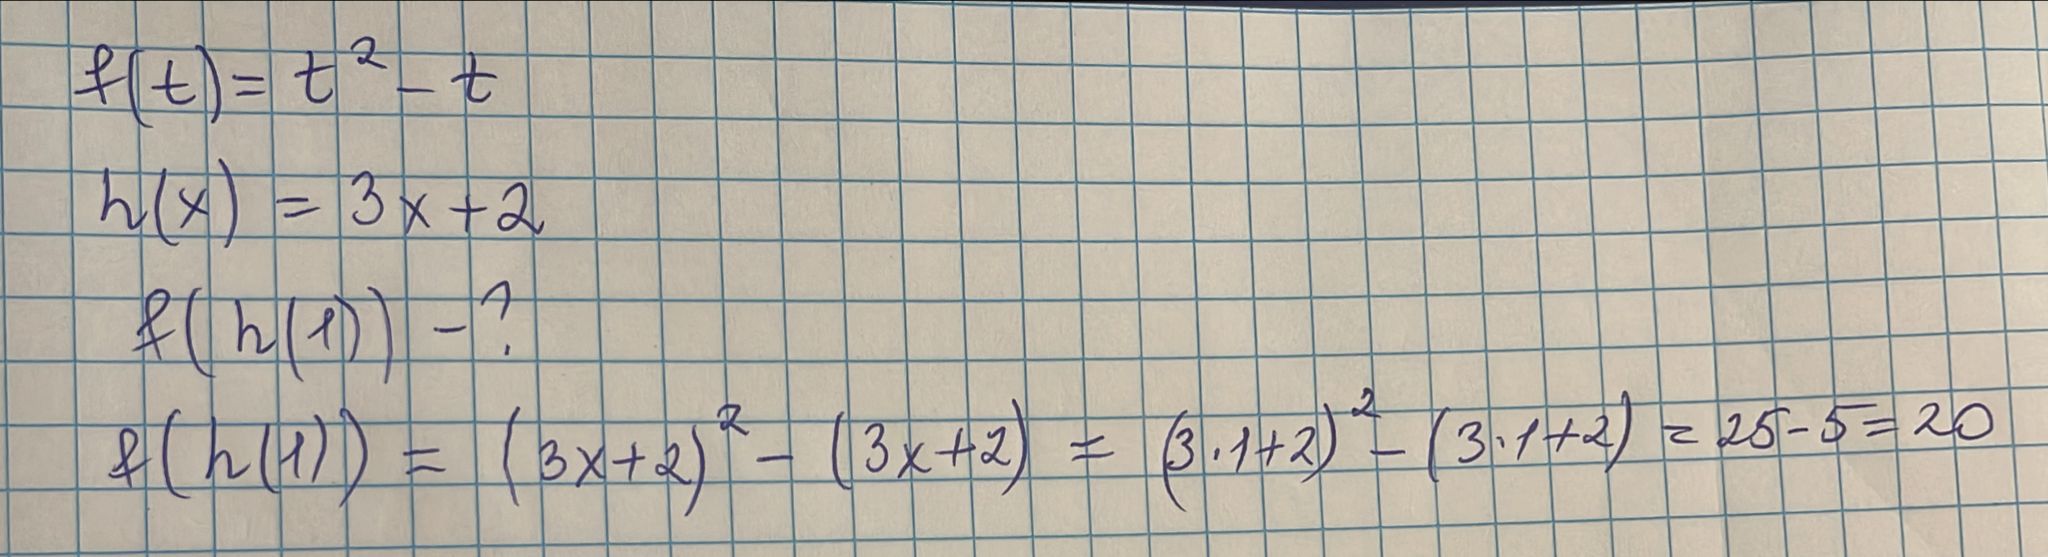 f(t) = t² - t
h(x) = 3x + 2
f(h(1)) - ?
f(h(1)) = (3x+2)² - (3x+2) = (3·1+2)² - (3·1+2) = 25 - 5 = 20